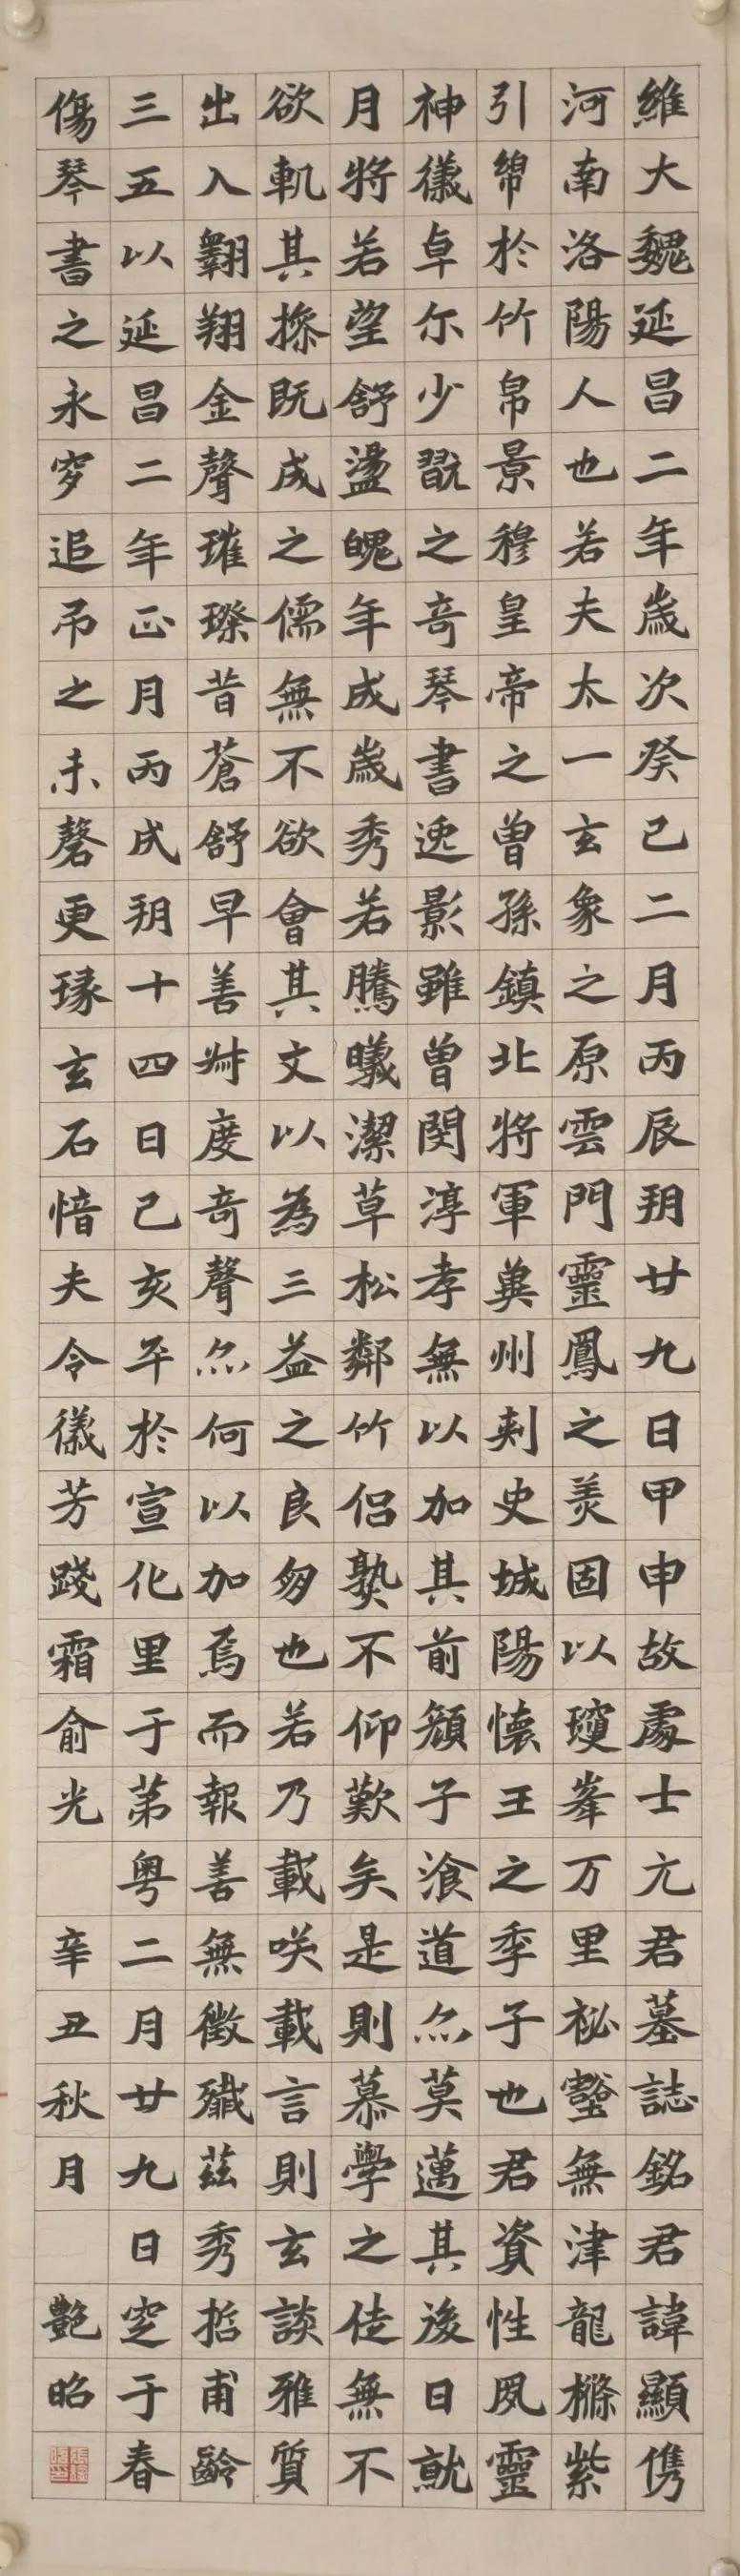 維大魏延昌二年歲次癸己二月丙辰玥廿九日甲申故處士亢君墓誌銘君諱顯儁
河南洛陽人也若夫太一玄象之原雲門靈鳳之羙固以瓊峯万里祕壑無津龍樤紫
引綿於竹帛景穆皇帝之曾孫鎮北將軍兾州刾史城陽懷王之季子也君資性夙靈
神儀卓尔少翫之奇琴書逸影雖曾閔淳孝無以加其前顏子湌道尒莫邁其後日就
月將若望舒盪魄年成歲秀若騰曦潔草松鄰竹侣熟不仰歎矣是則慕學之徒無不
欲軌其操既成之儒無不欲會其文以為三益之良匁也若乃載咲載言則玄談雅質
出入翱翔金聲璀璨昔蒼舒早善尗度奇聲尒何以加焉而報善無徵殲茲秀哲甫齡
三五以延昌二年正月丙戌玥十四日己亥卒於宣化里于苐粤二月廿九日窆于春
傷琴書之永穸追吊之未磬更瑑玄石愔夫令儀芳踐霜俞光 辛丑秋月 艷昭